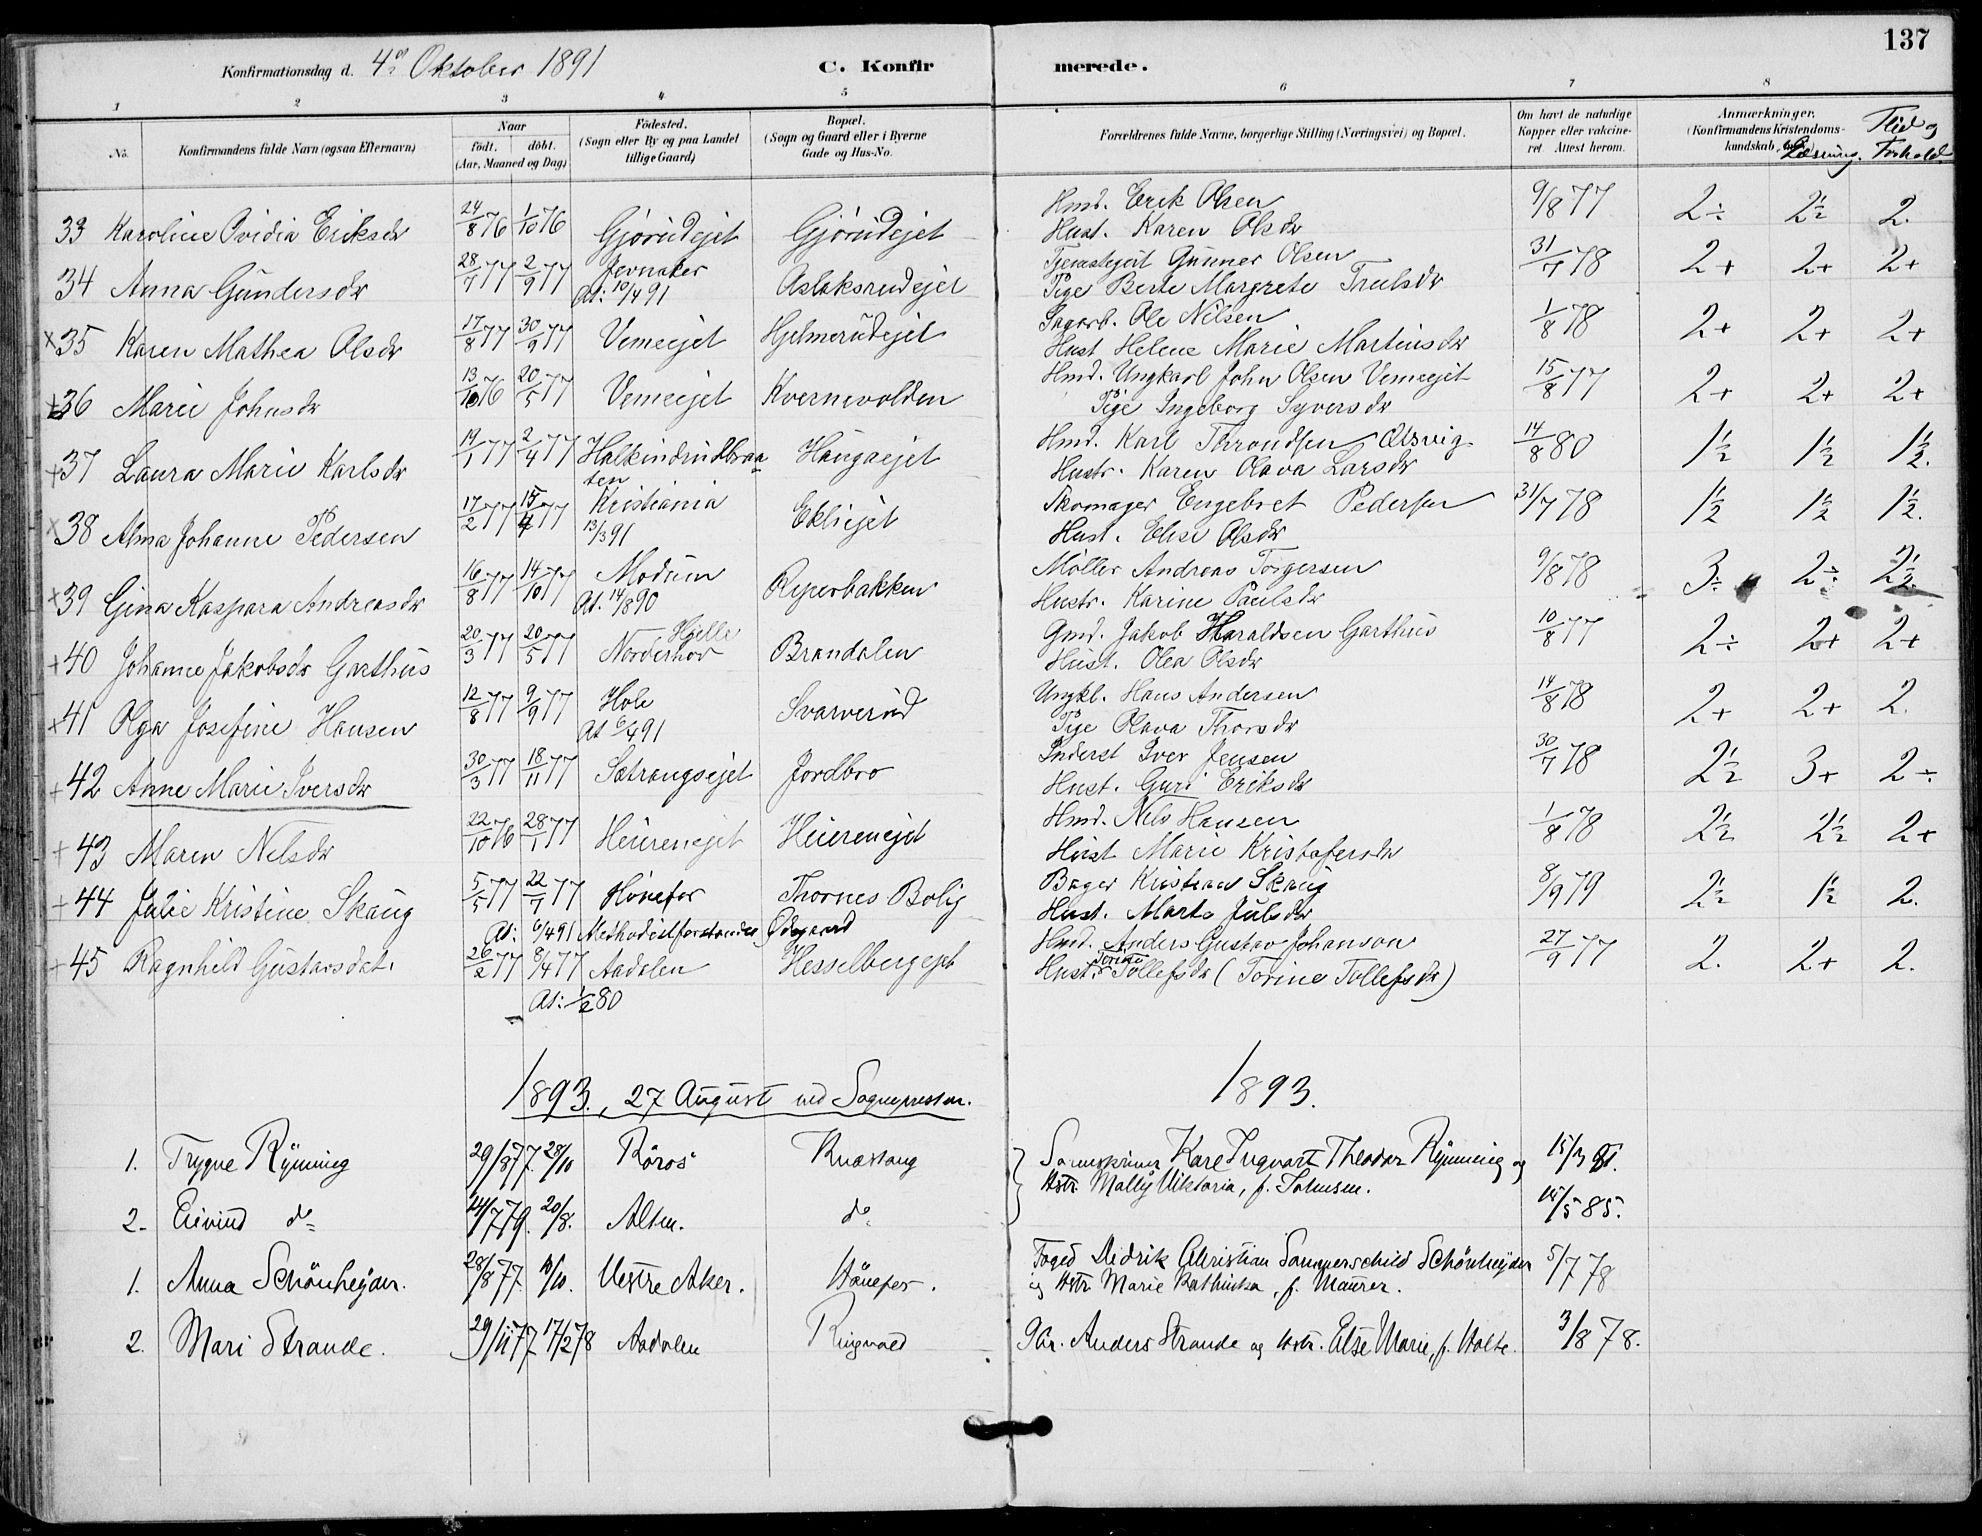 137
Konfirmationsdag d. 4de Oktober 1891
C. Konfirmerede.
1 2 3 4 5 6 7 8
No.
Konfirmandens fulde Navn (ogsaa Efternavn)
Naar
født. døbt.
(Aar, Maaned og Dag)
Födested.
(Sogn eller By og paa Landet
tillige Gaard)
Bopæl.
(Sogn og Gaard eller i Byerne
Gade og Hus-No.
Forældrenes fulde Navne, borgerlige Stilling (Næringsvei) og Bopæl.
Om havt de naturlige
Kopper eller vakcine-
ret. Attest herom.
Anmærkninger.
(Konfirmandens Kristendoms-
kundskab,
Læsning.
Flid og
Forhold
33 Karoline Ovidia Eriksdr 24/8 76 1/10 76 Gjörudejet Gjörudejet Hmd. Erik Olsen 9/8 77 2÷ 2½ 2.
Hust. Karen Olsdr
34 Anna Gundersdr 28/7 77 2/9 77 Jevnaker Aslaksrudejet Tjenestegut Gunner Olsen 31/7 78 2+ 2+ 2+
At. 10/4 91 Pige Berte Margrete Trulsdr
×35 Karen Mathea Olsdr 17/8 77 30/9 77 Vemeejet Hjelmerudejet Sagarb. Ole Nilsen 1/8 78 2+ 2+ 2+
Hust Helene Marie Martinsdr
+36 Marie Johnsdr 13/10 76 20/5 77 Vemeejet Kvernvolden Hmd. Ungkarl John Olsen Vemeejet 15/8 77 2+ 2+ 2+
Pige Ingeborg Syversdr
+37 Laura Marie Karlsdr 19/1 77 2/4 77 Halkinrudbraa= Haugaejet Hmd. Karl Throndsen Ølsvig 14/8 80 1½ 1½ 1½.
ten Hustr. Karen Olava Larsdr
×38 Alma Johanne Pedersen 17/2 77 15/4 77 Kristiania Ekliejet Skomager Engebret Pedersen 31/7 78 1½ 1½ 1½.
13/3 91 Hust. Elise Olsdr
×39 Gina Kaspara Andreasdr 16/8 77 14/10 77 Modum Reperbakken Møller Andreas Torgersen 9/8 78 3÷ 2÷ 2½.
At. 14/8 90 Hustr. Karine Paulsdr
+40 Johanne Jakobsdr Garthus 20/3 77 20/5 77 Hjelle Norderhov Brandalen Gmd. Jakob Haraldsen Garthus 10/8 77 2÷ 2+ 2+
Hust. Olea Olsdr
×41 Olga Josefine Hansen 12/8 77 9/9 77 Hole Svarverud Ungkl. Hans Andersen 14/8 78 2+ 2+ 2.
At 6/4 91 Pige Olava Thorsdr
+42 Anne Marie Iversdr 30/3 77 18/11 77 Sætrangsejet Jordbro Inderst Iver Jensen 30/7 78 2½ 3+ 2÷
Hust. Guri Eriksdr
+43 Maren Nelsdr 22/10 76 28/1 77 Heierenejet Heierenejet Hmd. Nels Hansen 1/8 78 2½ 2½ 2+
Hust Marie Kristofersdr
+44 Julie Kristine Skaug 5/5 77 22/7 77 Hönefos Thornes Bolig Bager Kristian Skaug 8/9 79 2½ 1½ 2.
At: 6/4 91 Methodistforstander Ødegaard Hust. Marte Julsdr
+45 Ragnhild Gustavsdat. 26/2 77 8/4 77 Aadalen Hesselbergejet Hmd. Anders Gustav Johanson 27/9 77 2. 2+ 2.
At: 1/2 80 Hustr. Torine Tollefsdr (Torine Tollefsdr)
1893., 27 August ved Sognepresten. 1893.
1. Trygve Rynning 29/8 77. 28/10 Röros Knæstang Karl Ingvart Theodor Rynning og 15/3 81.
Hstr. Mally Viktoria, f.
2. Eivind do 14/7 79. 20/8. Alten. do 15/5 85.
1. Anna Schönheyder. 28/8 77. 10/10. Vestre Aker. Hönefos. Foged Didrik Christian Sommerschild Schönheyder 5/7 78
og Hstr Marie Kathinka, f. Maurer.
2. Mari Strande. 29/11 77 17/2 78 Aadalen Ringvold Gbr. Anders Strande og Hstr. Else Marie, f. Holte. 3/8 78.